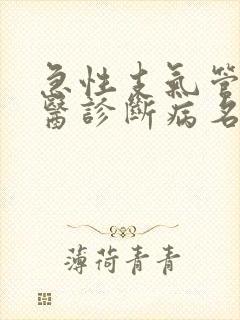 急性支氣管
醫診斷病名
薄荷青青